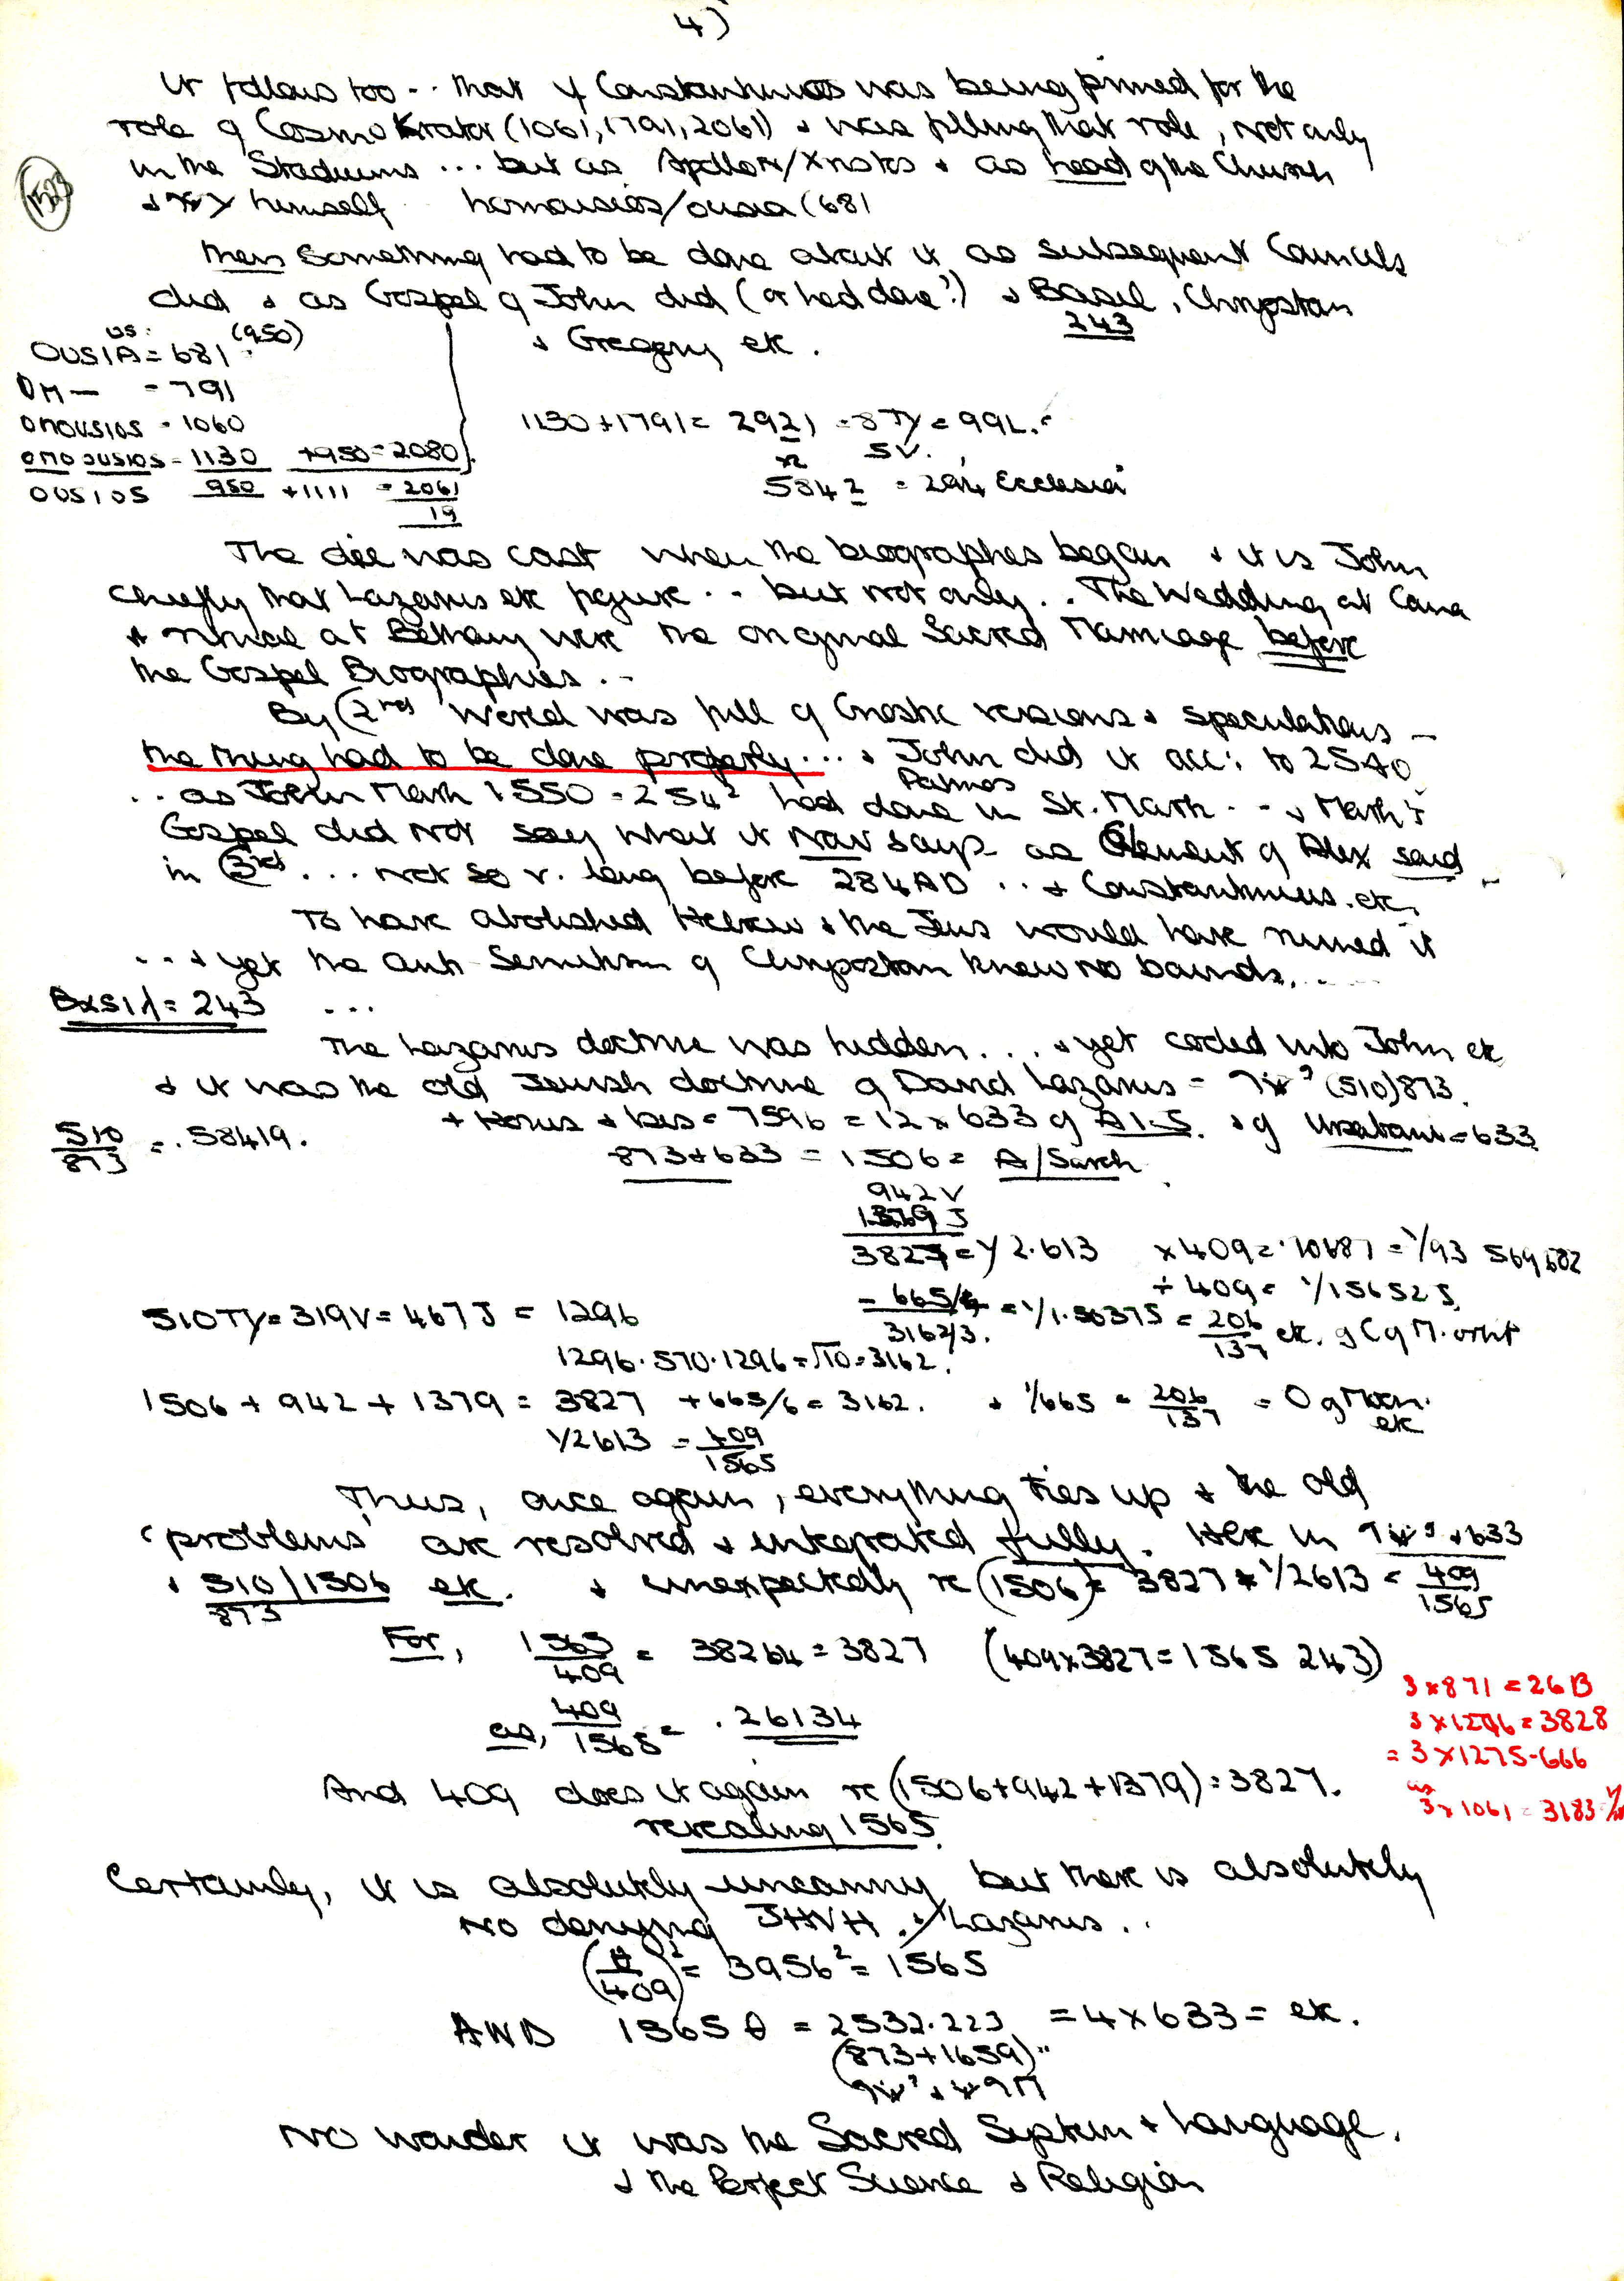 4)
It follows too .. that if Constantinus was being primed for the
role of CosmoKrator (1061, 1791, 2061) & was filling that role, not only
in the Stadiums ... but as Apollon/Xristos & as head of the Church
1523
& himself homousios/ousia (681
then something had to be done about it as subsequent Councils
did & as Gospel of John did (or had done?) & Basil, Chrysostom
243
& Gregory etc.
us. (950)
OUSIA = 681
OM — = 791
OMOUSIOS = 1060
OMO OUSIOS = 1130 +950 = 2080
OUSIOS 950 +1111 = 2061
19
1130 + 1791 = 2921 = 8Ty = 99L.
x2 5V.
5842 = 294 Ecclesia
The die was cast when the biographies began & it is John
chiefly that Lazarus etc figure .. but not only .. The Wedding at Cana
& at Bethany were the original Sacred Marriage before
the Gospel Biographies ..
By (2nd World was full of Gnostic versions & speculations —
the thing had to be done properly ... & John did it acc: to 2540
Patmos
.. as John Mark 1550 = 254² had done in St. Mark .. & Mark's
Gospel did not say what it now says as Clement of Alex said
in 3rd ... not so v. long before 284AD .. & Constantinus. etc.
To have abolished Hebrew & the Jews would have ruined it
... & yet the anti-Semitism of Chrysostom knew no bounds. ...
BASIL = 243 ...
The Lazarus doctrine was hidden ... & yet coded into John etc
& it was the old Jewish doctrine of David Lazarus = (510) 873.
+ Horus & Isis = 7596 = 12 x 633 of A.I.S. & of = 633
510/873 = .58419.
873 + 633 = 1506 = A/Sarah
942 V
1379 J
3827 = 1/2.613 x 409 = .10687 = 1/93 569 682
÷ 409 = 1/156525
- 665/6 = 1/1.50375 = 206/137 etc. of C of M. orbit
3162/3.
510Ty = 319V = 467J = 1296
1296 . 570 . 1296 = √10 = 3162.
1506 + 942 + 1379 = 3827 + 665/6 = 3162. & 1/665 = 206/137 = O of Moon. etc
1/2613 = 409/1565
Thus, once again, everything ties up & the old
'problems' are resolved & integrated fully. Here in & 633
& 510/873 | 1506 etc. & unexpectedly re (1506) = 3827 * 1/2613 = 409/1565
For, 1565/409 = 38264 = 3827 (409 x 3827 = 1565 243)
as, 409/1565 = .26134
3 x 871 = 2613
3 x 1276 = 3828
= 3 x 1275.666
as
3 x 1061 = 3183
And 409 does it again re (1506 + 942 + 1379) = 3827.
revealing 1565.
Certainly, it is absolutely uncanny but there is absolutely
no denying JHVH & Lazarus ..
( /409)² = 3956² = 1565
AND 1565 θ = 2532.223 = 4 x 633 = etc.
(873 + 1659)
No wonder it was the Sacred System & Language.
& the Perfect Science & Religion